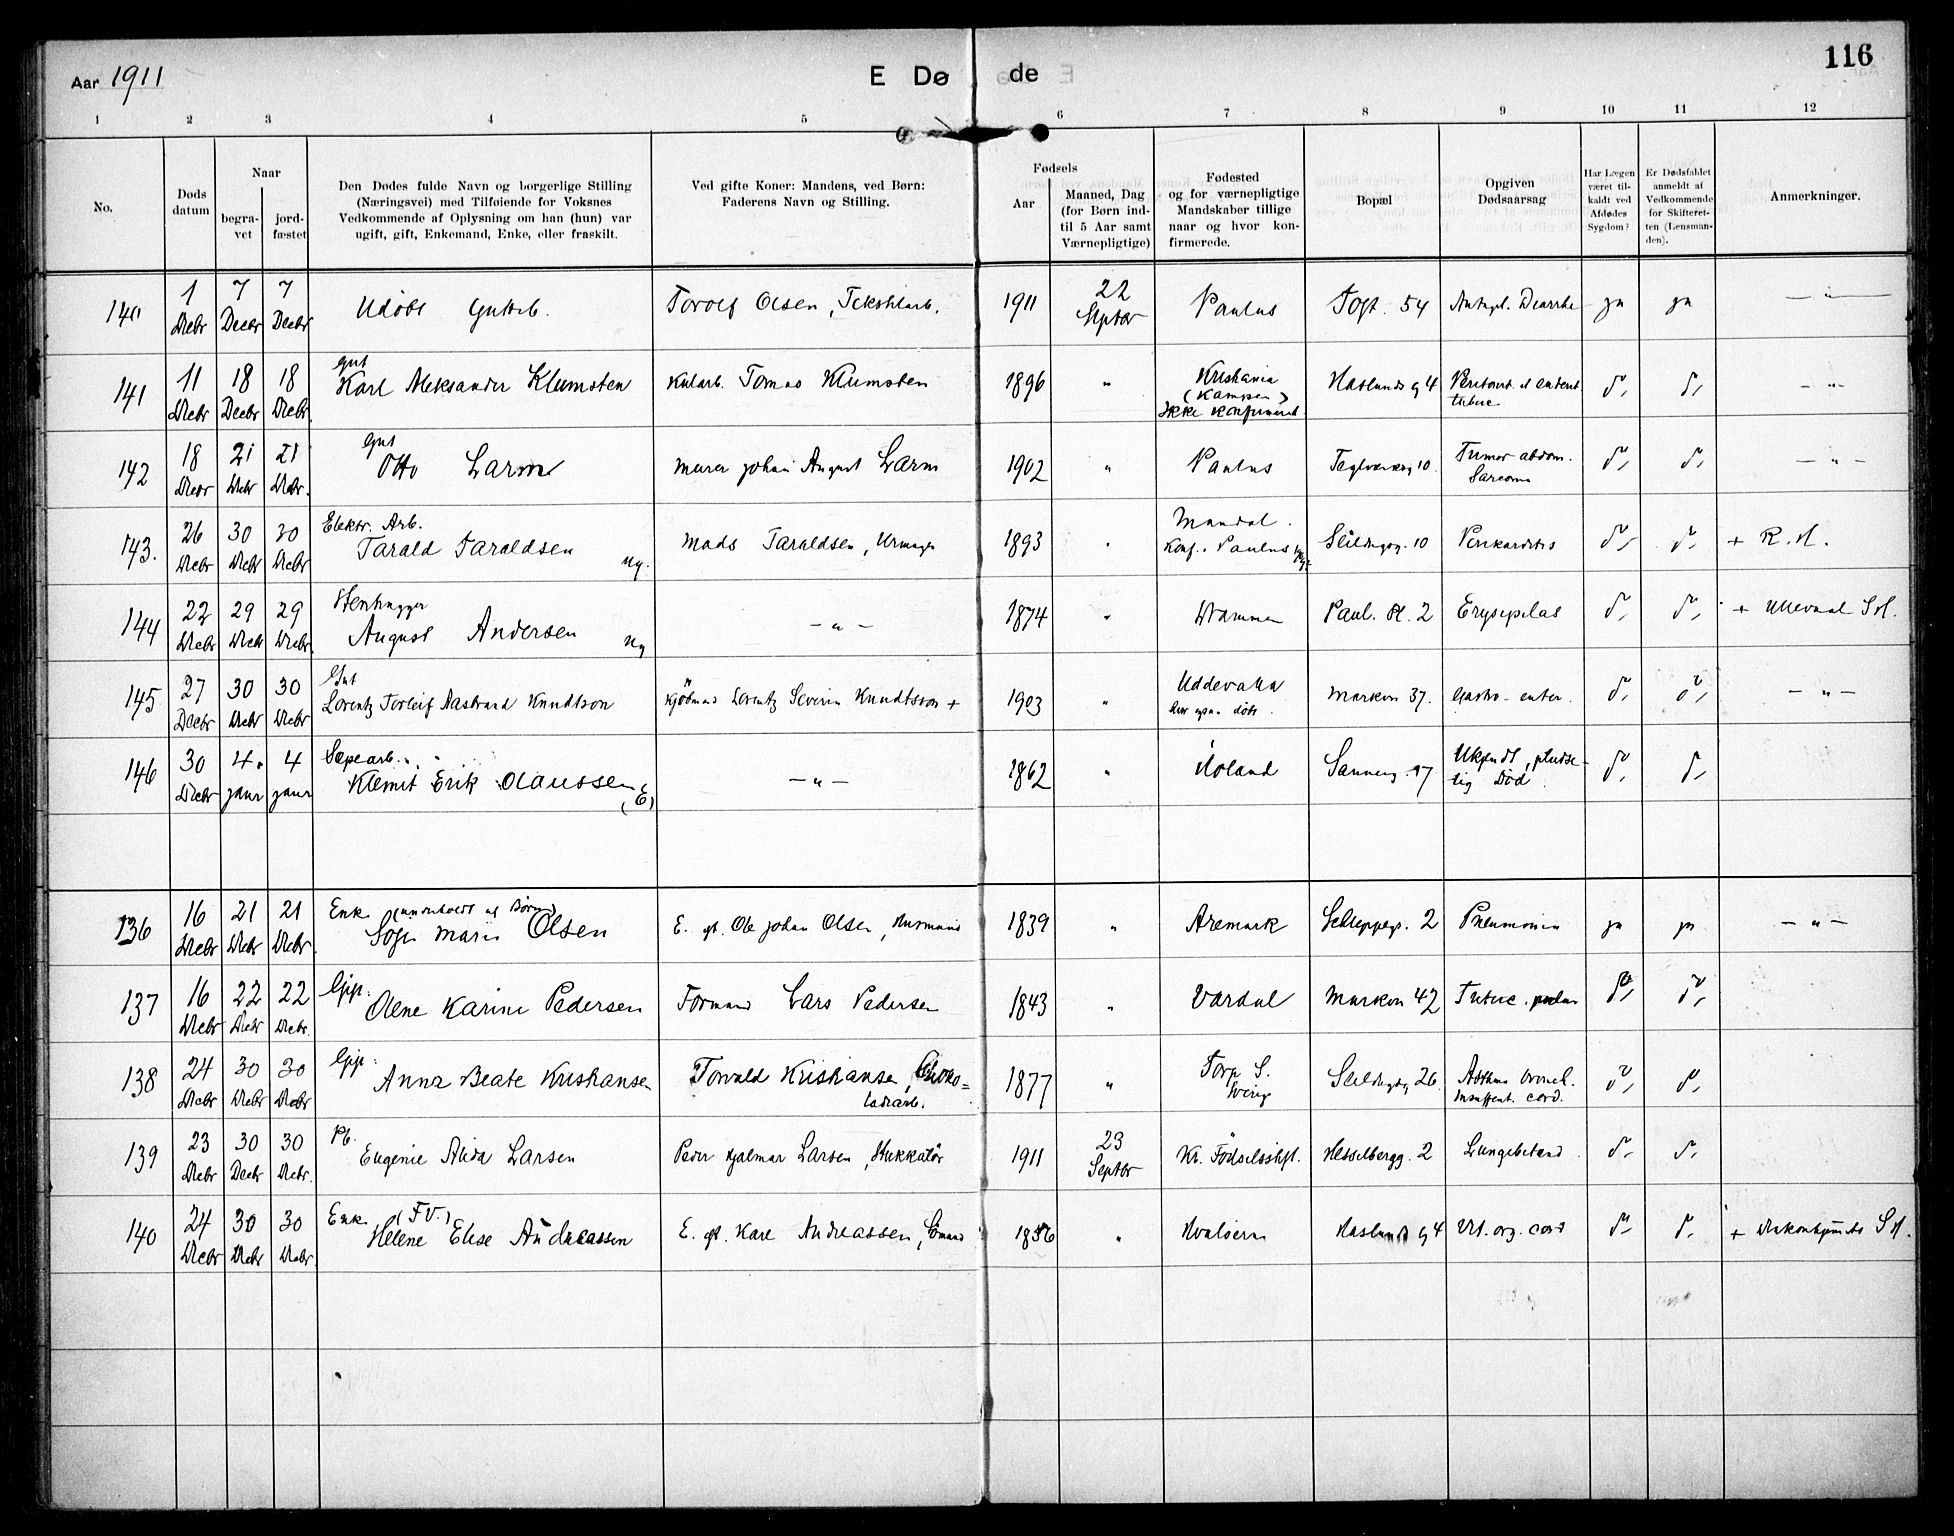 116
Aar 1911
E Dø de
1 2 3 4 5 6 7 8 9 10 11 12
No.
Døds datum
Naar
begravet
jordfæstet
Den Dødes fulde Navn og borgerlige Stilling (Næringsvei) med Tilføiende for Voksnes Vedkommende af Oplysning om han (hun) var ugift, gift, Enkemand, Enke, eller fraskilt.
Ved gifte Koner: Mandens, ved Børn: Faderens Navn og Stilling.
Fødsels
Aar
Maaned, Dag (for Børn indtil 5 Aar samt Værnepligtige)
Fødested og for værnepligtige Mandskaber tillige naar og hvor konfirmerede.
Bopæl
Opgiven Dødsaarsag.
Har Lægen været tilkaldt ved Afdødes Sygdom?
Er Dødsfaldet anmeldt af Vedkommende for Skifteretten (Lensmanden).
Anmerkninger.
140 1 Decbr 7 Decbr 7 Decbr Udöbt Gutteb. Torolf Olsen, Tekstilarb. 1911 22 Septbr Paulus Togt. 54 ja ja — " —
141 11 Decbr 18 Decbr 18 Decbr gut Karl Aleksander Klumsten Tomas Klumsten 1896 " Kristiania (Kampen) Ikke konfirmeret Haslunds g 4 d°, d°, — " —
142 18 Decbr 21 Decbr 21 Decbr Gut Otto Larm murer Johan August Larm 1902 " Paulus Teglverksg 10. Tumor abdom. Sarcoma d°, d°, — " —
143. 26 Decbr 30 Decbr 30 Decbr Elektr. Arb. Tarald Taraldsen ug. Mads Taraldsen, Urmager 1893 " Mandal. Konf. i Paulus Seildugsg. 10 Perikarditis d°, d°, + R. H.
144 22 Decbr 29 Decbr 29 Decbr Stenhugger August Andersen ug — " — 1874 " Drammen Paul. Pl. 2 Erysipelas d°, d°, + Ullevaal S H.
145 27 Decbr 30 Decbr 30 Decbr Gut Lorentz Torleif Aastrand Knudtson Kjöbmand Lorentz Severin Knudtsson + 1903 " Uddevalla Markvn 37. Gastro-enter. d°, d°, — " —
146 30 Decbr 4. Januar 4 Januar Sæpearb. Klemit Erik Olaussen (E) — " — 1862 " Sannerg. 17 Ukjendt, pludselig Död. d°, d°,
136 16 Decbr 21 Decbr 21 Decbr Enke (underholdt af Börn) Sofie Marie Olsen E. eft. Ole Johan Olsen, Husmand 1839 " Aremark Schleppegr. 2 Pneumonia ja ja — " —
137 16 Decbr 22 Decbr 22 Decbr Gift. Olene Karine Pedersen Formand Lars Pedersen 1843 " Vardal Markvn 42 Tuberc. pulm d°, d°,
138 24 Decbr 30 Decbr 30 Decbr Gift. Anna Beate Kristiansen Torvald Kristiansen, Chokoladearb. 1877 " Torp S. Sverige Seildugsg 26. Asthma bronch. Insuffient. cord. d°, d°,
139 23 Decbr 30 Decbr 30 Decbr Pb. Eugenie Alida Larsen Peder Hjalmar Larsen, Stukkatör 1911 23 Septbr Kr. Födselsstift. Hesselbergg. 2 Lungebetænd. d°, d°,
140 24 Decbr 30 Decbr 30 Decbr Enke (F.V.) Helene Elise Andreassen E. eft. Karl Andreassen, Sömand 1856 " Hvalöerne Haslunds g 4 Vit. org. cord d°, d°, + Diakonhjemmets S H.